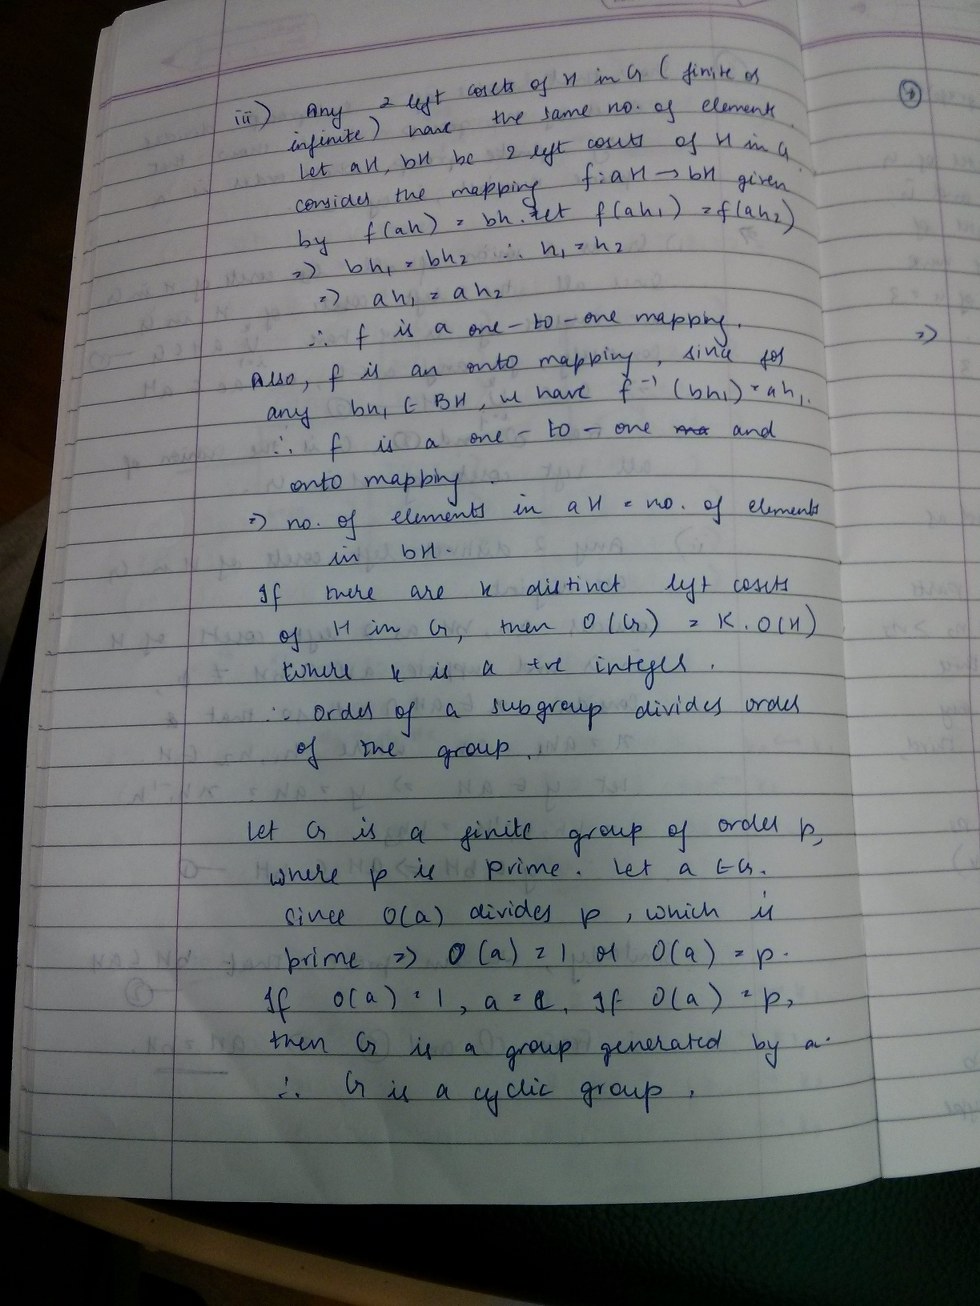 iii) Any 2 left cosets of H in G ( finite or
infinite) have the same no. of elements
Let aH, bH, be 2 left cosets of H in G
consider the mapping f: aH → bH given
by f(ah) = bh. Let f(ah₁) = f(ah₂)
=> bh₁ = bh₂ ∴ h₁ = h₂
=> ah₁ = ah₂
∴ f is a one-to-one mapping.
Also, f is an onto mapping, since for
any bh₁ ∈ BH, we have f⁻¹ (bh₁) = ah₁.
∴ f is a one-to-one and
onto mapping.
=> no. of elements in aH = no. of elements
in bH.
If there are k distinct left cosets
of H in G, then O(G) = K. O(H)
where k is a +ve integer.
∴ order of a subgroup divides order
of the group.
Let G is a finite group of order p,
where p is prime. Let a ∈ G.
since O(a) divides p, which is
prime => O(a) = 1 or O(a) = p.
If O(a) = 1, a = e. If O(a) = p,
then G is a group generated by a.
∴ G is a cyclic group.
=>